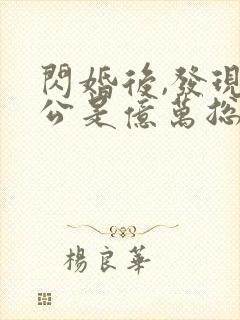 閃婚後,發現
公是億萬总
楊良華